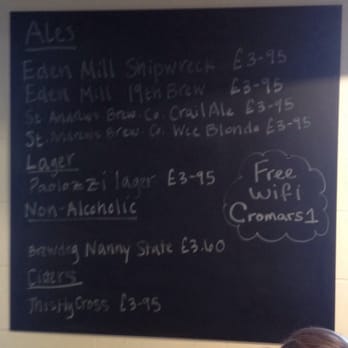 Ales
Eden Mill Shipwreck £3-95
Eden Mill 19th Brew £3-95
St. Andrews Brew. Co. Crail Ale £3-95
St. Andrews Brew. Co. Wee Blonde £3-95
Lager
Paolozzi lager £3-95
Non-Alcoholic
Brewdog Nanny State £3.60
Ciders
ThistlyCross £3-95
Free
Wifi
Cromars1